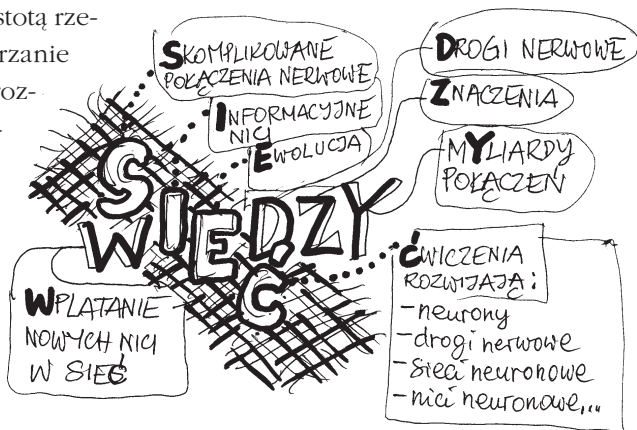 stotą rze-
rzanie
roz-
SKOMPLIKOWANE
POŁĄCZENIA NERWOWE
INFORMACYJNE
NICI
EWOLUCJA
DROGI NERWOWE
ZNACZENIA
MYLIARDY
POŁĄCZEŃ
SIEĆ
WIEDZY
WPLATANIE
NOWYCH NICI
W SIEĆ
ĆWICZENIA
ROZWIJAJĄ:
-neurony
-drogi nerwowe
-sieci neuronowe
-nici neuronowe,...